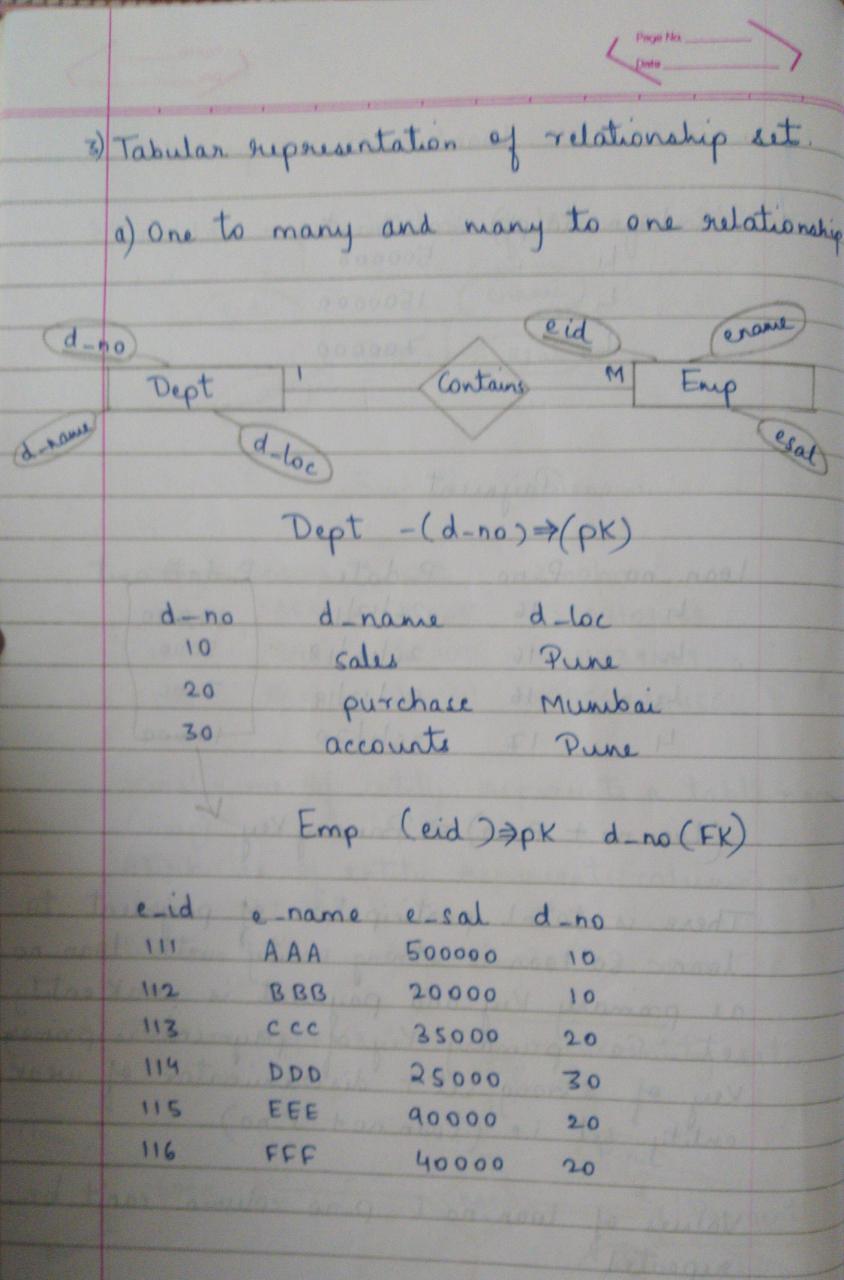 Page No.
Date
3) Tabular representation of relationship set.
a) One to many and many to one relationship
d_no
eid
ename
Dept
1
Contains
M
Emp
d_name
d_loc
esal
Dept -(d_no)⇒(pK)
d_no d_name d_loc
10 sales Pune
20 purchase Mumbai
30 accounts Pune
Emp (eid)⇒pK d_no(FK)
e_id e_name e_sal d_no
111 AAA 500000 10
112 BBB 20000 10
113 CCC 35000 20
114 DDD 25000 30
115 EEE 90000 20
116 FFF 40000 20